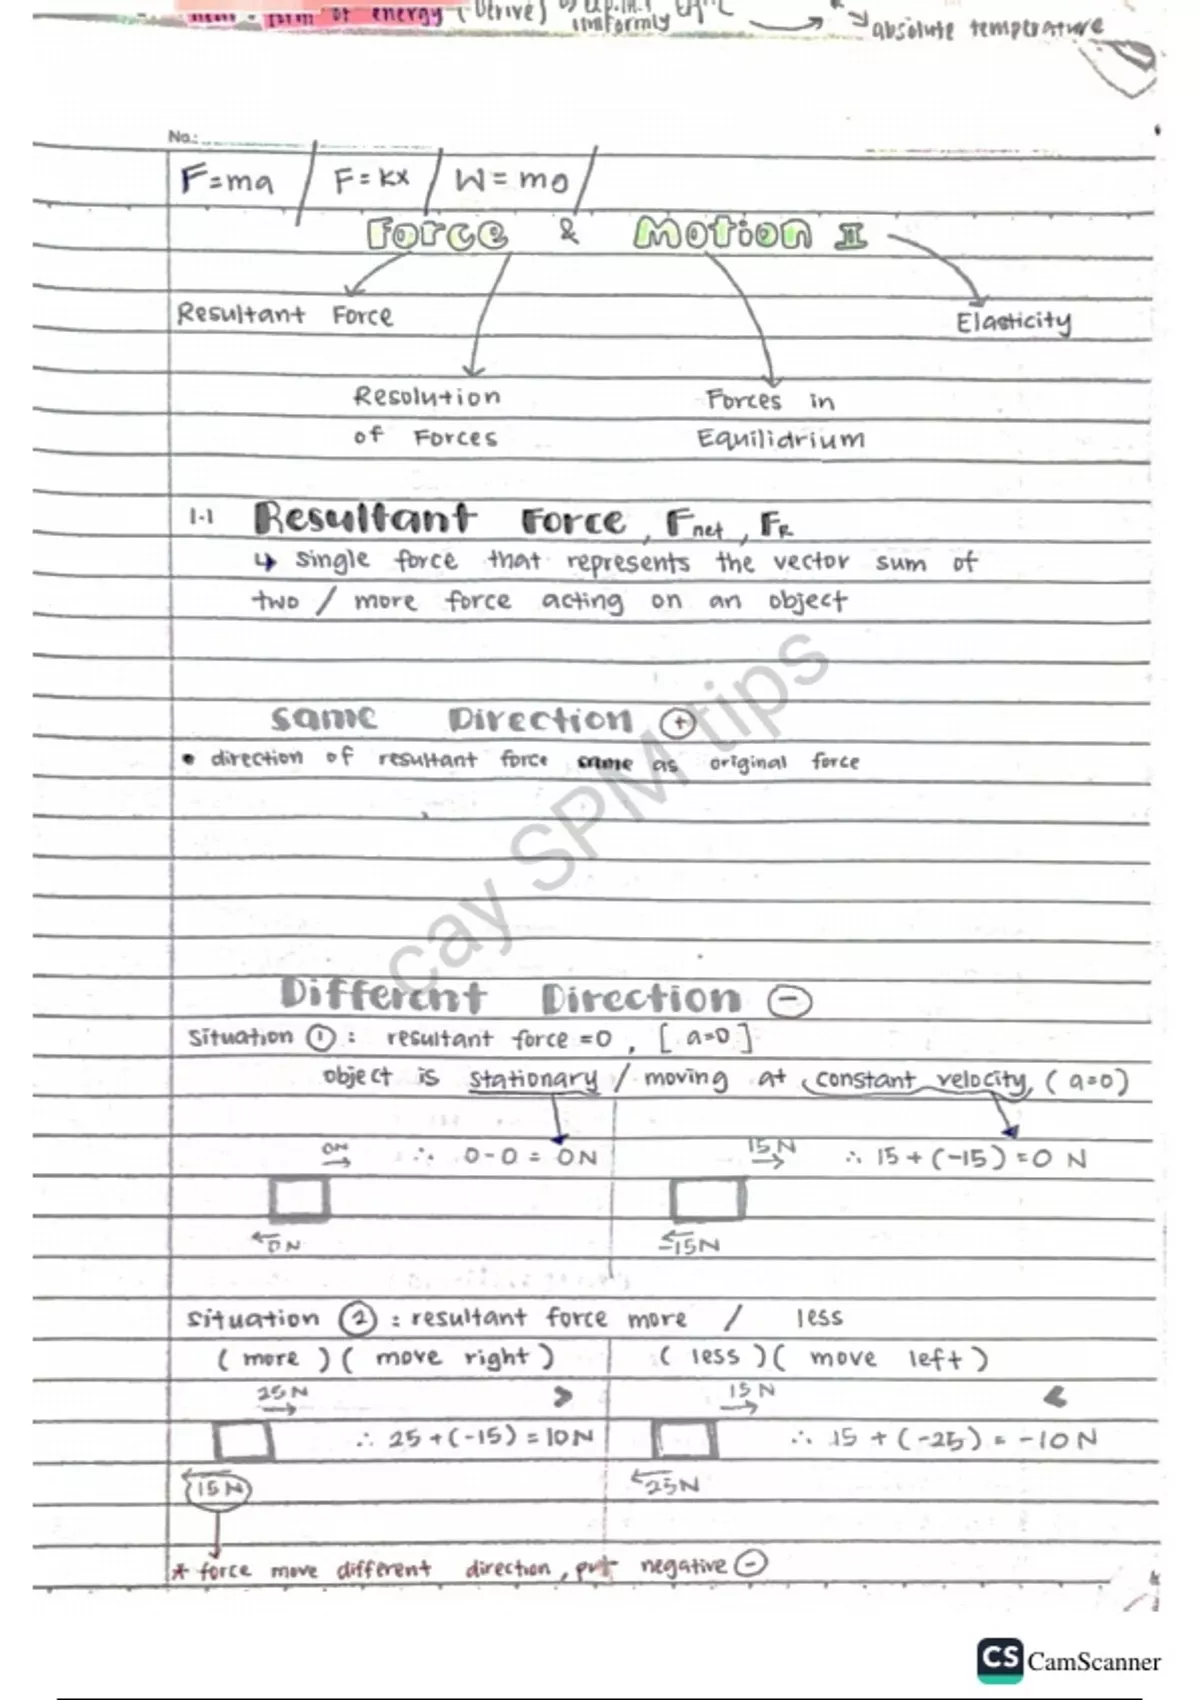 form of energy (Derive)
uniformly
absolute temperature
No.:
F=ma / F=kx / W=mg /
Force & Motion II
Resultant Force
Elasticity
Resolution
of Forces
Forces in
Equilidrium
1.1 Resultant Force, Fnet, FR
↳ single force that represents the vector sum of
two / more force acting on an object
Same Direction (+)
• direction of resultant force same as original force
Different Direction (-)
Situation ①: resultant force =0, [a=0]
object is stationary / moving at constant velocity, (a=0)
0N ∴ 0-0 = 0N
0N
15N ∴ 15+(-15)=0 N
-15N
Situation ②: resultant force more / less
(more)(move right) (less)(move left)
25N >
∴ 25+(-15)=10N
15N
15N <
∴ 15+(-25)= -10N
25N
* force move different direction, put negative (-)
cay SPM tips
CS CamScanner